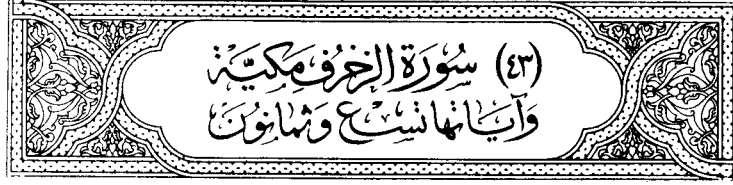 (٤٣) سُورَة الزخرُف مَكيَّة
وَآيَاتهَا تِسْعٌ وَثمَانُونَ